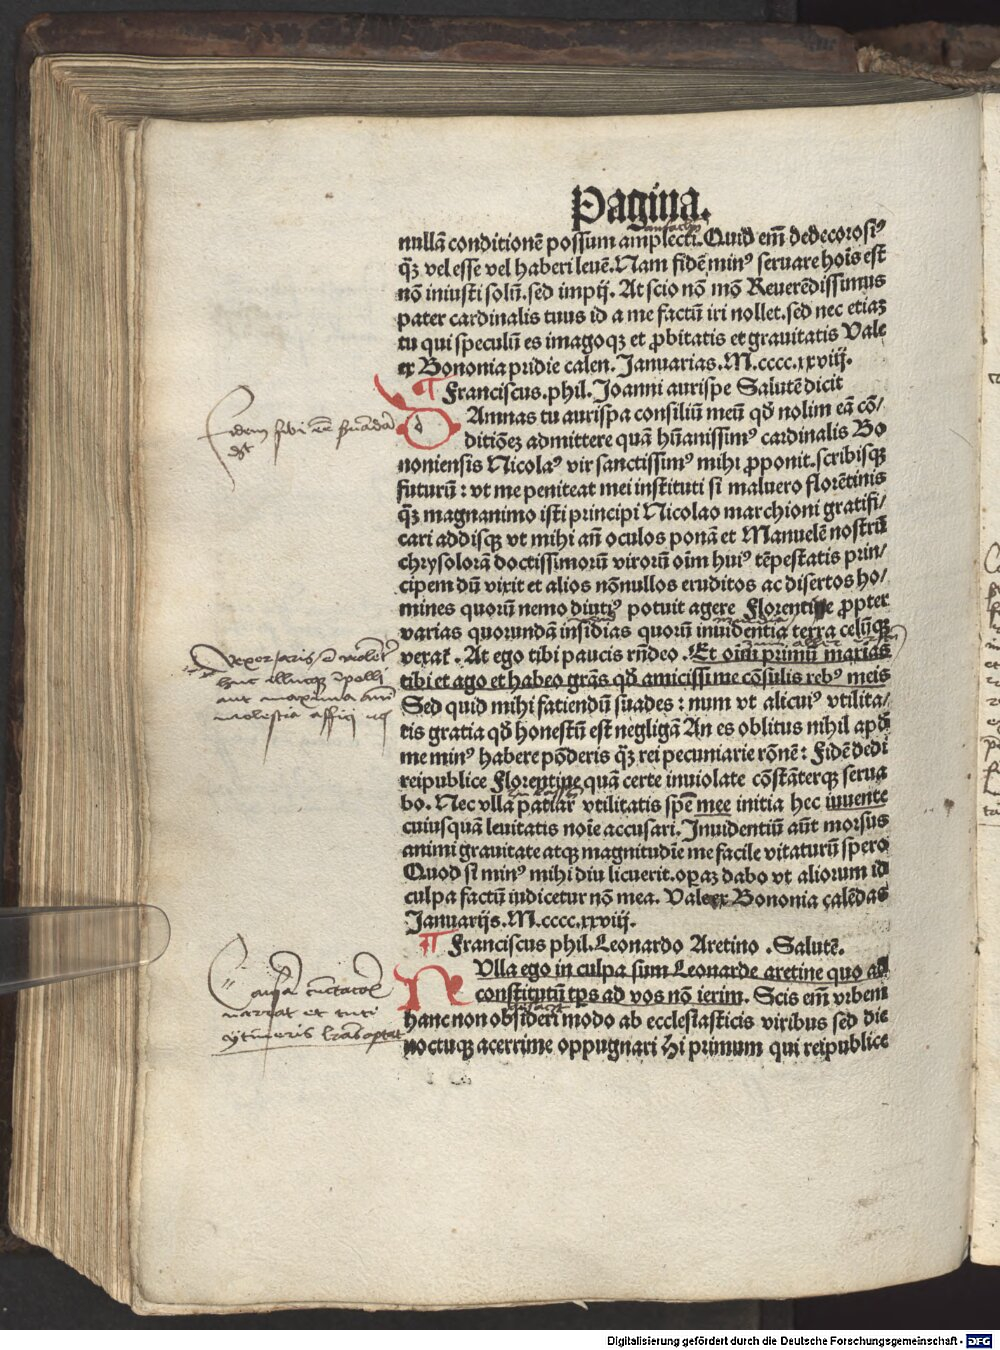 Pagina.
nullā conditionē possum amplecti. Quid em̄ dedecorosiꝰ
q̄ꝫ vel esse vel haberi leuē. Nam fidē minꝰ seruare hoīs est
nō iniusti solū. sed impij. At scio nō mō Reuerēdissimus
pater cardinalis tuus id a me factū iri nollet. sed nec etiaꝫ
tu qui speculū es imagoqꝫ et ꝓbitatis et grauitatis Vale
ex Bononia pridie calen. Januarias. M.cccc.xxviij.
¶ Franciscus. phil. Joanni aurispe Salutē dicit
d
Amnas tu aurispa consiliū meū qđ nolim eā cō/
ditiōeꝫ admittere quā hūanissimꝰ cardinalis Bo
noniensis Nicolaꝰ vir sanctissimꝰ mihi ꝓponit. scribisqꝫ
futurū : vt me peniteat mei instituti si maluero florētinis
q̄ꝫ magnanimo isti principi Nicolao marchioni gratifi/
cari addisqꝫ vt mihi an̄ oculos ponā et Manuelē nostrū
chrysolorā doctissimorū virorū oīm huiꝰ tēpestatis prin/
cipem dū vixit et alios nōnullos eruditos ac disertos ho/
mines quorū nemo diutiꝰ potuit agere Florentie ꝓpter
varias quorundā insidias quorū inuidentia terra celūqꝫ
vexat̄. At ego tibi paucis rn̄deo. Et oīm primū maxīas
tibi et ago et habeo grās qđ amicissime cōsulis rebꝰ meis
Sed quid mihi fatiendū suades : num vt alicuiꝰ vtilita/
tis gratia qđ honestū est negligā An es oblitus nihil apđ
me minꝰ habere pōderis q̄ꝫ rei pecuniarie rōnē : Fidē dedi
reipublice Florentine quā certe inuiolate cōstāterqꝫ serua
bo. Nec vlla patiar vtilitatis spē mee initia hec iuuente
cuiusquā leuitatis noīe accusari. Inuidentiū aūt morsus
animi grauitate atqꝫ magnitudīe me facile vitaturū spero
Quod si minꝰ mihi diu licuerit. operaꝫ dabo vt aliorum id
culpa factū iudicetur nō mea. Vale ex Bononia calēdas
Januarijs. M.cccc.xxviij.
¶ Franciscus phil. Leonardo Aretino. Salutē.
N
Vlla ego in culpa sum Leonarde aretine quo ad
constitutū tp̄s ad vos nō ierim. Scis em̄ vrbem
hanc non obsideri modo ab ecclesiasticis viribus sed die
noctuqꝫ acerrime oppugnari Hi primum qui reipublice
Digitalisierung gefördert durch die Deutsche Forschungsgemeinschaft - DFG